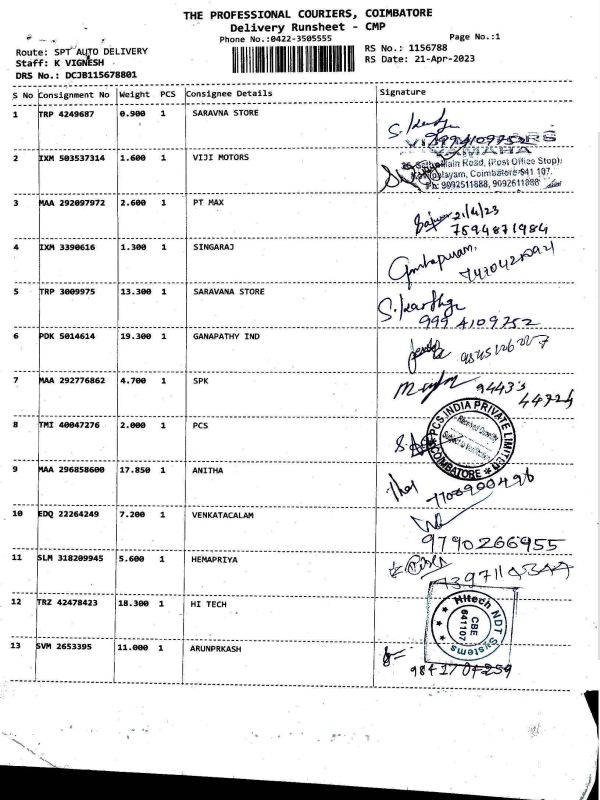 THE PROFESSIONAL COURIERS, COIMBATORE
Delivery Runsheet - CMP
Phone No.:0422-3505555
Page No.:1
Route: SPT AUTO DELIVERY
RS No.: 1156788
Staff: K VIGNESH
RS Date: 21-Apr-2023
DRS No.: DCJB115678801
S No Consignment No Weight PCS Consignee Details Signature
1 TRP 4249687 0.900 1 SARAVNA STORE
2 IXM 503537314 1.600 1 VIJI MOTORS
YAMAHA
Main Road, (Post Office Stop)
Coimbatore-641 107.
Ph: 9092511888, 9092611888
3 MAA 292097972 2.600 1 PT MAX
21/4/23
7594871984
4 IXM 3390616 1.300 1 SINGARAJ
5 TRP 3009975 13.300 1 SARAVANA STORE
S. Karthi
9994109752
6 PDK 5014614 19.300 1 GANAPATHY IND
7 MAA 292776862 4.700 1 SPK
94433
44724
8 TMI 40047276 2.000 1 PCS
PCS INDIA PRIVATE LIMITED
COIMBATORE
9 MAA 296858600 17.850 1 ANITHA
7708900496
10 EDQ 22264249 7.200 1 VENKATACALAM
9790266955
11 SLM 318209945 5.600 1 HEMAPRIYA
12 TRZ 42478423 18.300 1 HI TECH
Hitech NDT Systems
CBE
641107
13 SVM 2653395 11.000 1 ARUNPRKASH